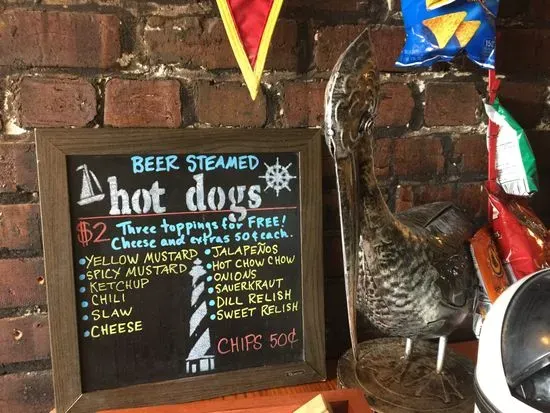 BEER STEAMED
hot dogs
$2 Three toppings for FREE!
Cheese and extras 50¢ each.
• YELLOW MUSTARD
• SPICY MUSTARD
• KETCHUP
• CHILI
• SLAW
• CHEESE
• JALAPEÑOS
• HOT CHOW CHOW
• ONIONS
• SAUERKRAUT
• DILL RELISH
• SWEET RELISH
CHIPS 50¢